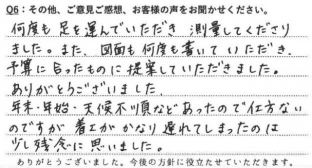 Q6：その他、ご意見ご感想、お客様の声をお聞かせください。
何度も足を運んでいただき 測量してくださり
ました。また、図面も何度も書いていただき、
予算に合ったものに提案していただきました。
ありがとうございました。
年末・年始・天候不順などあったので仕方ない
のですが 着工が かなり遅れてしまったのは
少し残念に思いました。
ありがとうございました。今後の方針に役立たせていただきます。